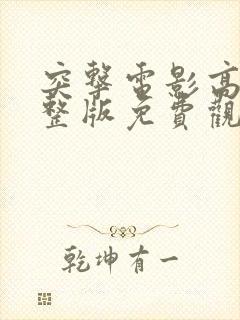 突擊電影高
整版免費觀
乾坤有一